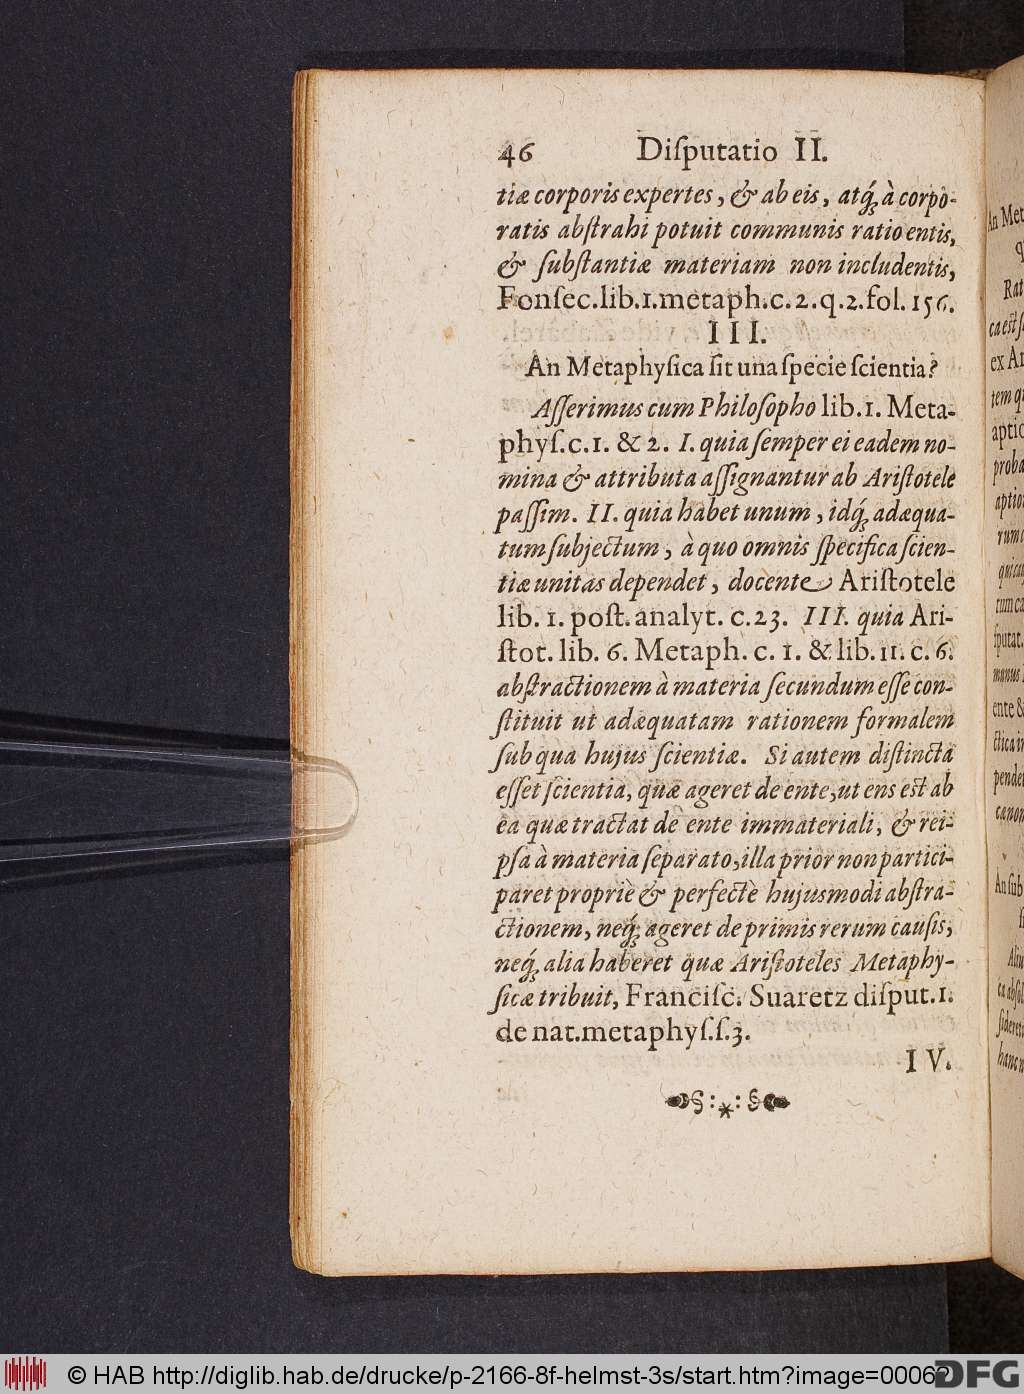 46 Diſputatio II.
tiæ corporis expertes, & ab eis, atq́; à corpo-
ratis abſtrahi potuit communis ratio entis,
& ſubſtantiæ materiam non includentis,
Fonſec.lib.1.metaph.c.2.q.2.fol.156.
III.
An Metaphyſica ſit una ſpecie ſcientia?
Aſſerimus cum Philoſopho lib.1. Meta-
phyſ.c.1. & 2. I. quia ſemper ei eadem no-
mina & attributa aſſignantur ab Ariſtotele
paſſim. II. quia habet unum, idq́; adæqua-
tum ſubjectum, à quo omnis ſpecifica ſcien-
tiæ unitas dependet, docente Ariſtotele
lib. 1. poſt. analyt. c.23. III. quia Ari-
ſtot. lib. 6. Metaph. c. 1. & lib. 11. c. 6.
abſtractionem à materia ſecundum eſſe con-
ſtituit ut adæquatam rationem formalem
ſub qua hujus ſcientiæ. Si autem diſtincta
eſſet ſcientia, quæ ageret de ente, ut ens est ab
ea quæ tractat de ente immateriali, & rei-
pſa à materia ſeparato, illa prior non partici-
paret propriè & perfectè hujusmodi abſtra-
ctionem, neq́; ageret de primis rerum cauſis,
neq́; alia haberet quæ Ariſtoteles Metaphy-
ſicæ tribuit, Franciſc. Suaretz diſput.1.
de nat.metaphyſ.ſ.3.
IV.
An Met
Rat
ca eſt ſ
ex Ar
tem q
aptio
proba
aptio
rum
qui ca
tum ca
ſputat.
manus
ente &
ctica in
pende
canon
An ſub
Aliu
ca abſol
ſideret
hanc
© HAB http://diglib.hab.de/drucke/p-2166-8f-helmst-3s/start.htm?image=0006
DFG